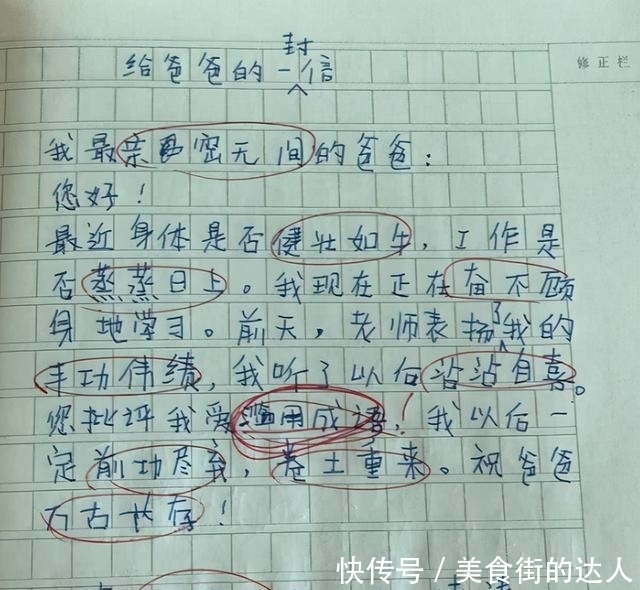 给爸爸的一封信
修正栏
我最亲密无间的爸爸：
您好！
最近身体是否健壮如牛，工作是
否蒸蒸日上。我现在正在奋不顾
身地学习。前天，老师表扬了我的
丰功伟绩，我听了以后沾沾自喜。
您批评我爱滥用成语！我以后一
定前功尽弃，卷土重来。祝爸爸
万古长存！
快传号 / 美食街的达人